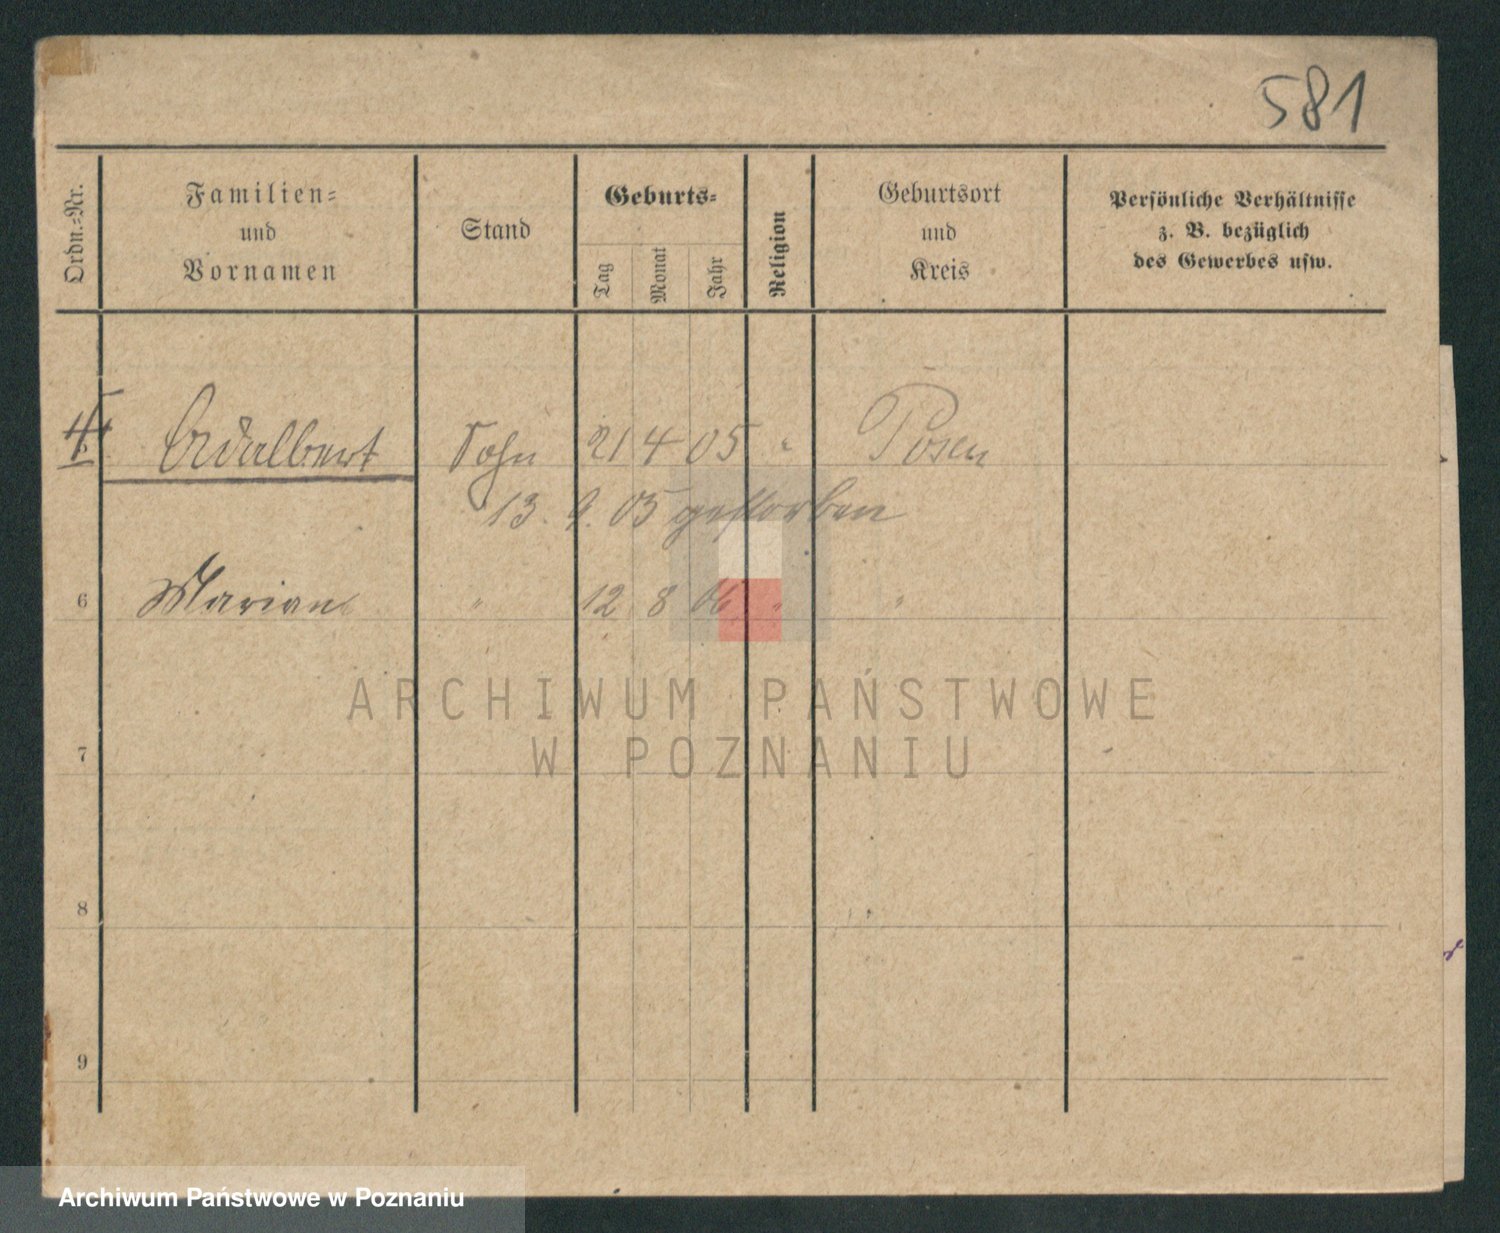 581
Ordn.-Nr.
Familien-
und
Vornamen
Stand
Geburts-
Tag
Monat
Jahr
Religion
Geburtsort
und
Kreis
Persönliche Verhältnisse
z. B. bezüglich
des Gewerbes usw.
Adalbert Sohn 21 4 05 " Posen
13. 9. 05 gestorben
6 Marian " 12 8 06 " "
ARCHIWUM PAŃSTWOWE
W POZNANIU
7
8
9
Archiwum Państwowe w Poznaniu